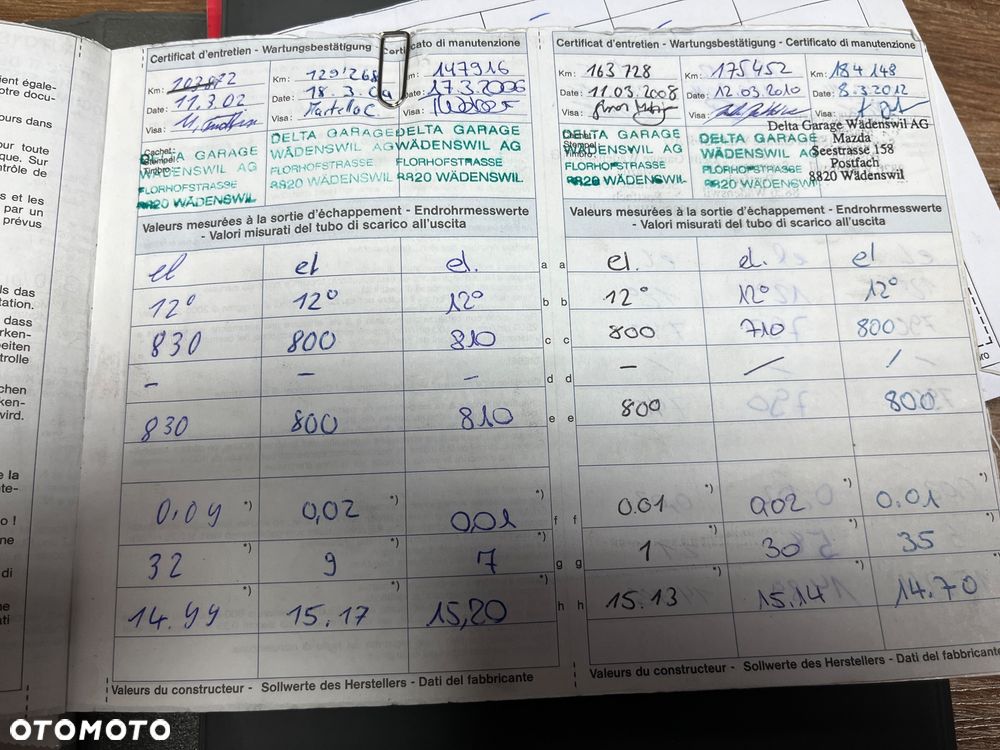 ient égale-
otre docu-
ours dans
our toute
que. Sur
ntrôle de
s et les
par un
prévus
ls das
tation.
dass
rken-
eiten
trolle
chen
ken-
vird.
e la
ete-
o !
ne
di
ne
ati
Certificat d'entretien - Wartungsbestätigung - Certificato di manutenzione
Km: 129'268
Km: 147316
Date: 11.3.02
Date: 18.3.04
Date: 17.3.2006
Visa:
Visa:
Visa:
Cachet:
Stempel:
Timbro:
DELTA GARAGE
WÄDENSWIL AG
FLORHOFSTRASSE
8820 WÄDENSWIL
DELTA GARAGE
WÄDENSWIL AG
FLORHOFSTRASSE
8820 WÄDENSWIL
DELTA GARAGE
WÄDENSWIL AG
FLORHOFSTRASSE
8820 WÄDENSWIL
Valeurs mesurées à la sortie d'échappement - Endrohrmesswerte
- Valori misurati del tubo di scarico all'uscita
el el el. a
12° 12° 12° b
830 800 810 c
- - - d
830 800 810 e
0,04 *) 0,02 *) 0,01 *) f
32 *) 9 *) 7 *) g
14.99 *) 15.17 *) 15,20 *) h
Valeurs du constructeur - Sollwerte des Herstellers - Dati del fabbricante
Certificat d'entretien - Wartungsbestätigung - Certificato di manutenzione
Km: 163 728
Km: 175452
Km: 184 148
Date: 11.03.2008
Date: 12.03.2010
Date: 8.3.2012
Visa:
Visa:
Visa:
Cachet:
Stempel:
Timbro:
DELTA GARAGE
WÄDENSWIL AG
FLORHOFSTRASSE
8820 WÄDENSWIL
DELTA GARAGE
WÄDENSWIL AG
FLORHOFSTRASSE
8820 WÄDENSWIL
Delta Garage Wädenswil AG
Mazda
Seestrasse 158
Postfach
8820 Wädenswil
Valeurs mesurées à la sortie d'échappement - Endrohrmesswerte
- Valori misurati del tubo di scarico all'uscita
a el. el. el
b 12° 12° 12°
c 800 710 800
d - / /
e 800 800
f 0.01 *) 0.02 *) 0.01 *)
g 1 *) 30 *) 35 *)
h 15.13 *) 15.14 *) 14.70 *)
Valeurs du constructeur - Sollwerte des Herstellers - Dati del fabbricante
OTOMOTO